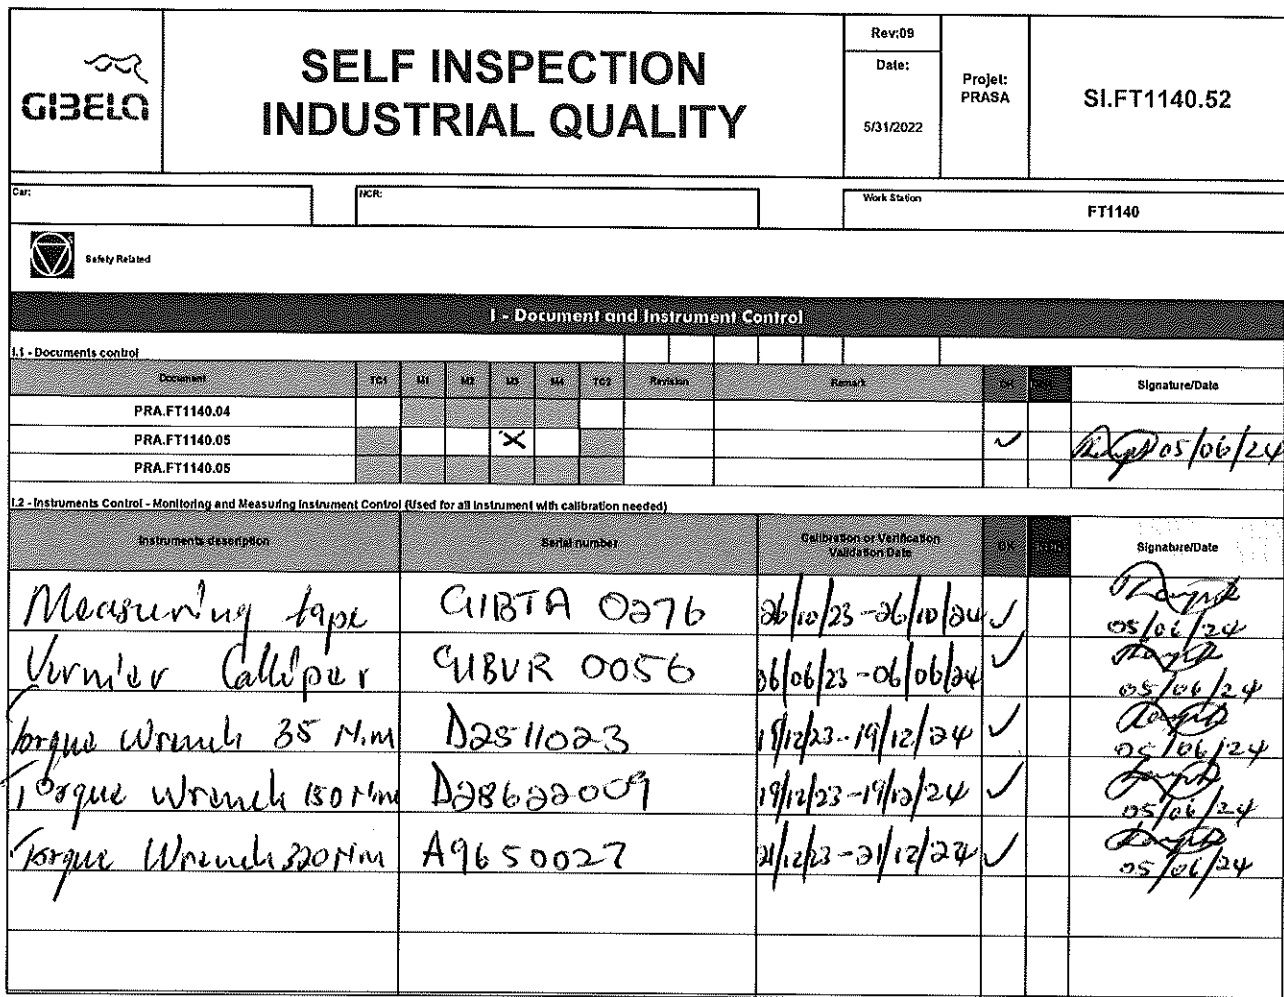 GIBELA
SELF INSPECTION
INDUSTRIAL QUALITY
Rev:09
Date:
5/31/2022
Projet:
PRASA
SI.FT1140.52
Car:
NCR:
Work Station
FT1140
Safety Related
I - Document and Instrument Control
I.1 - Documents control
Document TC1 M1 M2 M3 M4 TC2 Revision Remark OK Signature/Date
PRA.FT1140.04
PRA.FT1140.05 X ✓ 05/06/24
PRA.FT1140.05
I.2 - Instruments Control - Monitoring and Measuring Instrument Control (Used for all Instrument with calibration needed)
Instruments description Serial number Calibration or Verification Validation Date OK Signature/Date
Measuring tape GIBTA 0276 26/10/23-26/10/24 ✓ 05/06/24
Vernier Calliper GIBVR 0056 06/06/23-06/06/24 ✓ 05/06/24
Torque Wrench 35 N.m D2511023 19/12/23-19/12/24 ✓ 05/06/24
Torque Wrench 150 N.m D28622009 19/12/23-19/12/24 ✓ 05/06/24
Torque Wrench 320 N.m A9650027 21/12/23-21/12/24 ✓ 05/06/24